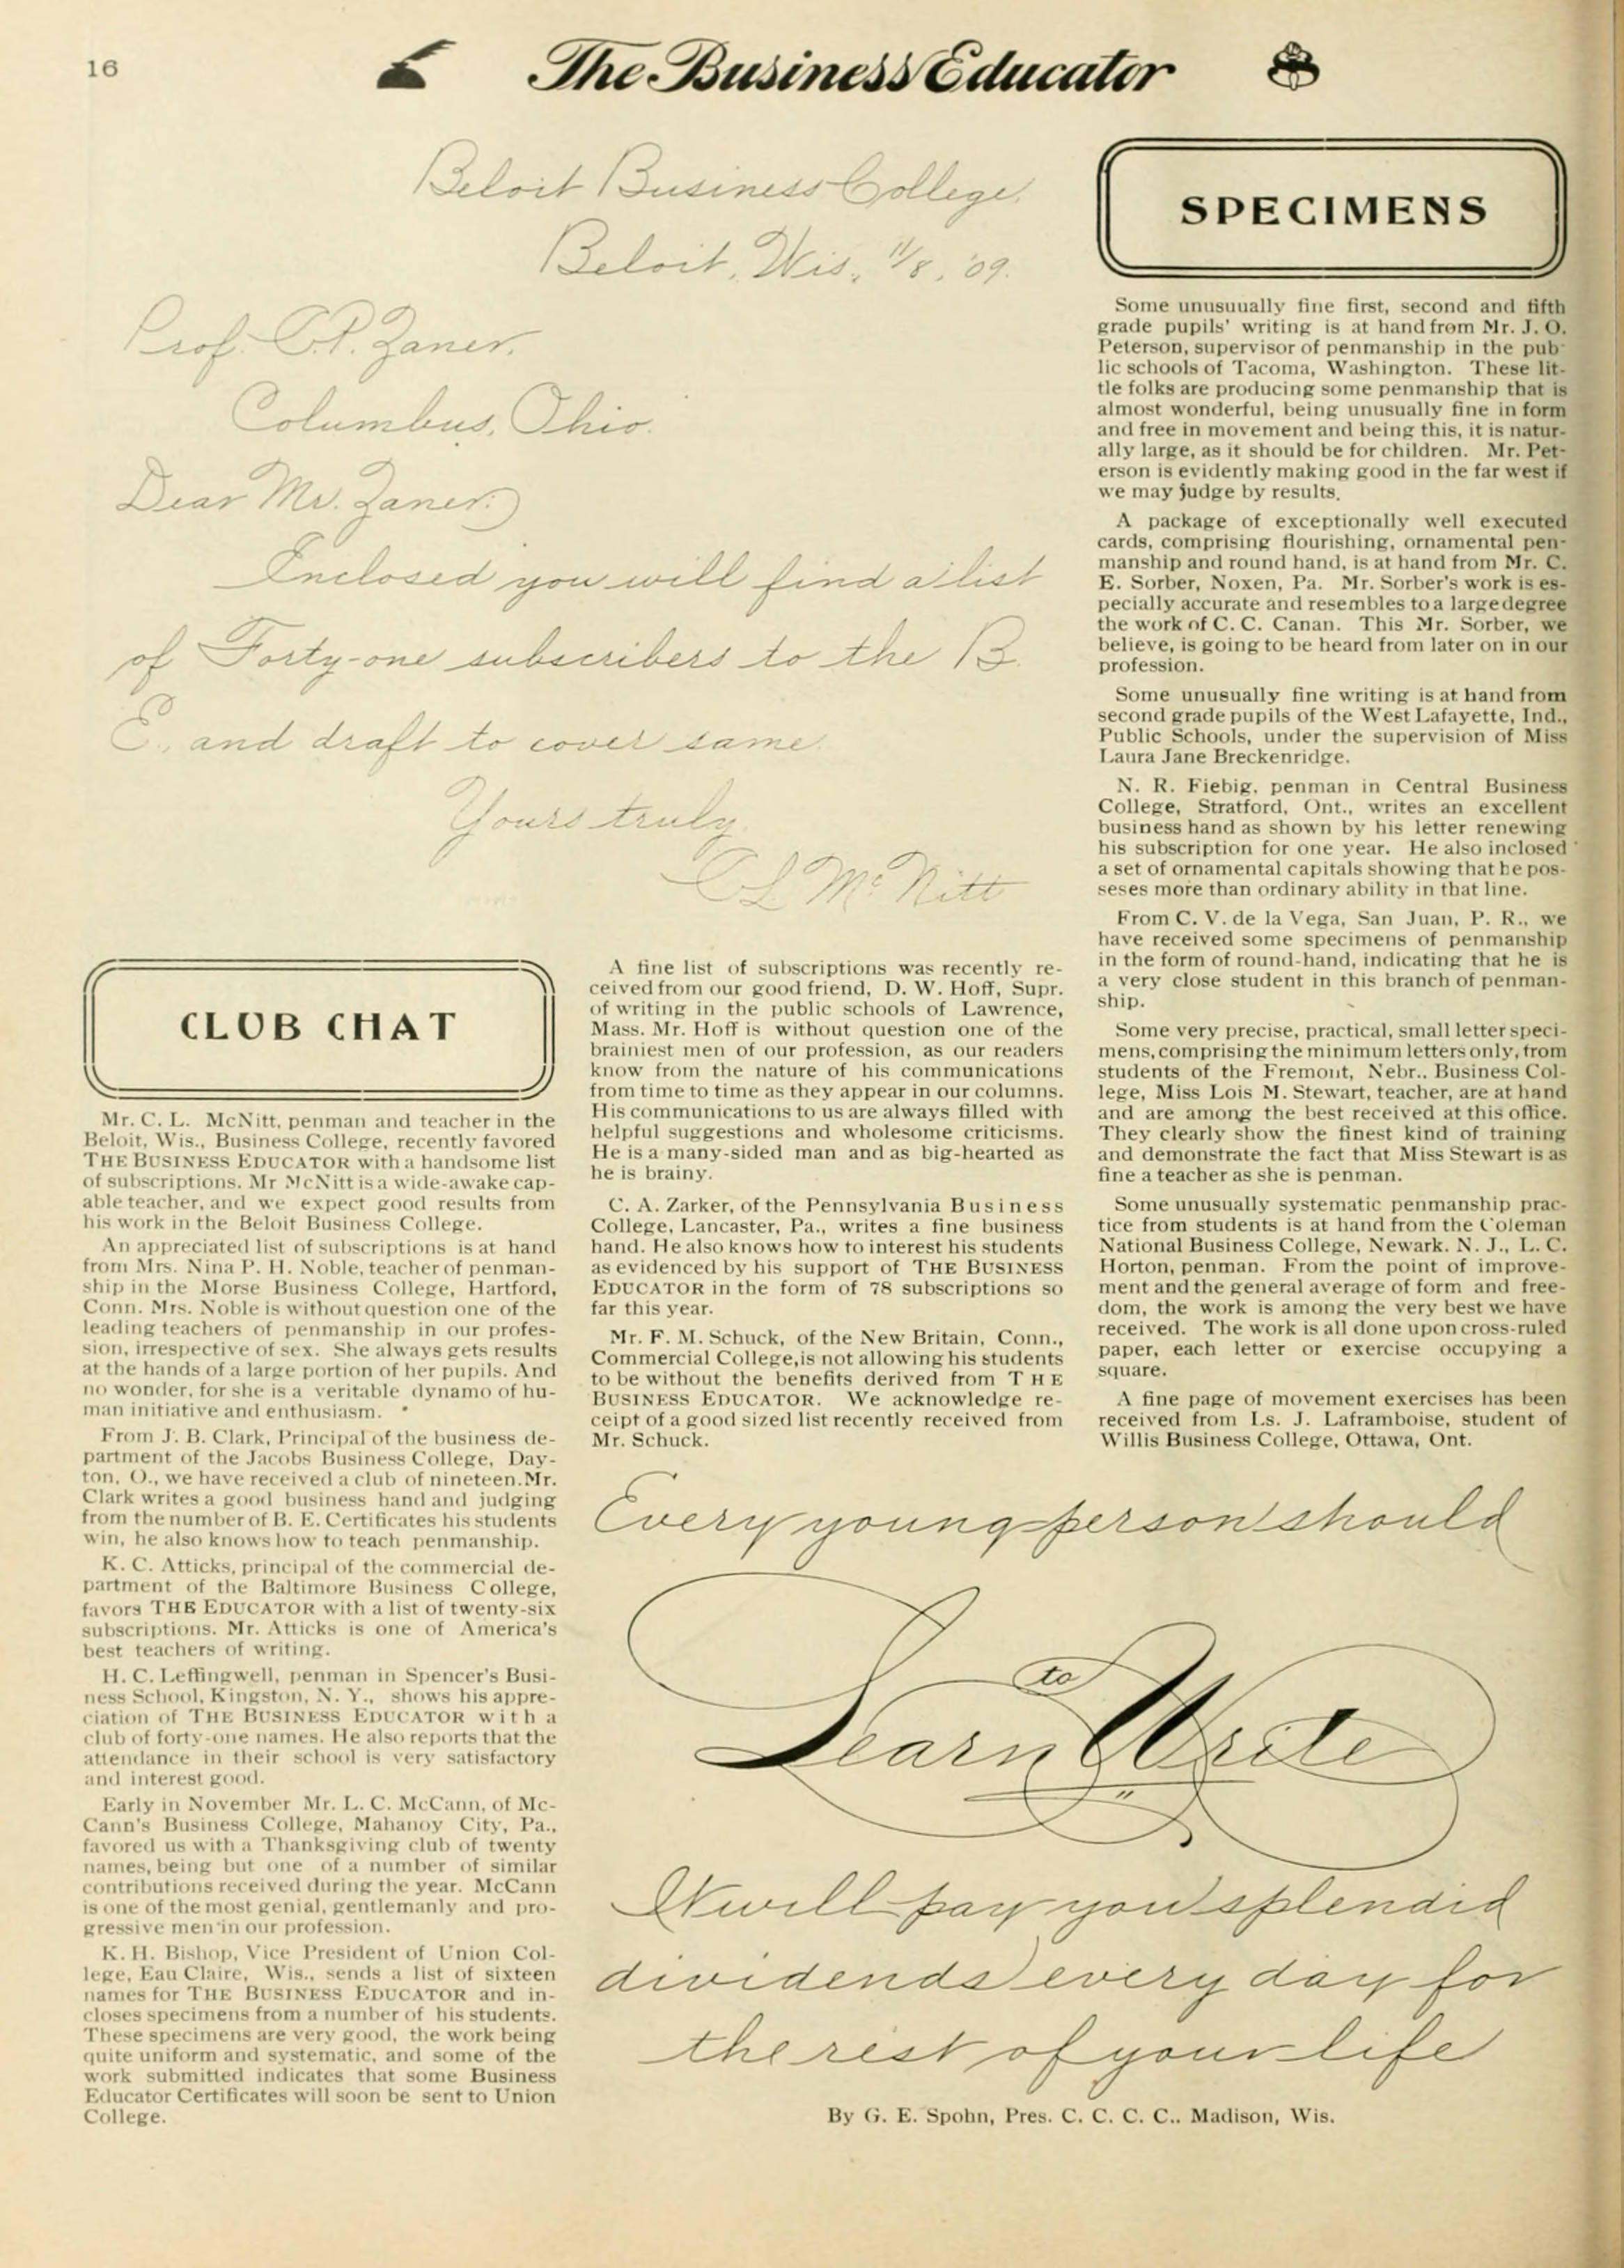 16
The Business Educator
Beloit Business College,
Beloit, Wis., 11/8, '09.
Prof. C.P. Zaner,
Columbus, Ohio.
Dear Mr. Zaner:
Enclosed you will find a list
of Forty-one subscribers to the B.
E., and draft to cover same.
Yours truly
C L McNitt
CLUB CHAT
Mr. C. L. McNitt, penman and teacher in the
Beloit, Wis., Business College, recently favored
THE BUSINESS EDUCATOR with a handsome list
of subscriptions. Mr McNitt is a wide-awake cap-
able teacher, and we expect good results from
his work in the Beloit Business College.
An appreciated list of subscriptions is at hand
from Mrs. Nina P. H. Noble, teacher of penman-
ship in the Morse Business College, Hartford,
Conn. Mrs. Noble is without question one of the
leading teachers of penmanship in our profes-
sion, irrespective of sex. She always gets results
at the hands of a large portion of her pupils. And
no wonder, for she is a veritable dynamo of hu-
man initiative and enthusiasm.
From J. B. Clark, Principal of the business de-
partment of the Jacobs Business College, Day-
ton, O., we have received a club of nineteen. Mr.
Clark writes a good business hand and judging
from the number of B. E. Certificates his students
win, he also knows how to teach penmanship.
K. C. Atticks, principal of the commercial de-
partment of the Baltimore Business College,
favors THE EDUCATOR with a list of twenty-six
subscriptions. Mr. Atticks is one of America's
best teachers of writing.
H. C. Leffingwell, penman in Spencer's Busi-
ness School, Kingston, N. Y., shows his appre-
ciation of THE BUSINESS EDUCATOR with a
club of forty-one names. He also reports that the
attendance in their school is very satisfactory
and interest good.
Early in November Mr. L. C. McCann, of Mc-
Cann's Business College, Mahanoy City, Pa.,
favored us with a Thanksgiving club of twenty
names, being but one of a number of similar
contributions received during the year. McCann
is one of the most genial, gentlemanly and pro-
gressive men in our profession.
K. H. Bishop, Vice President of Union Col-
lege, Eau Claire, Wis., sends a list of sixteen
names for THE BUSINESS EDUCATOR and in-
closes specimens from a number of his students.
These specimens are very good, the work being
quite uniform and systematic, and some of the
work submitted indicates that some Business
Educator Certificates will soon be sent to Union
College.
A fine list of subscriptions was recently re-
ceived from our good friend, D. W. Hoff, Supr.
of writing in the public schools of Lawrence,
Mass. Mr. Hoff is without question one of the
brainiest men of our profession, as our readers
know from the nature of his communications
from time to time as they appear in our columns.
His communications to us are always filled with
helpful suggestions and wholesome criticisms.
He is a many-sided man and as big-hearted as
he is brainy.
C. A. Zarker, of the Pennsylvania Business
College, Lancaster, Pa., writes a fine business
hand. He also knows how to interest his students
as evidenced by his support of THE BUSINESS
EDUCATOR in the form of 78 subscriptions so
far this year.
Mr. F. M. Schuck, of the New Britain, Conn.,
Commercial College, is not allowing his students
to be without the benefits derived from THE
BUSINESS EDUCATOR. We acknowledge re-
ceipt of a good sized list recently received from
Mr. Schuck.
SPECIMENS
Some unusuually fine first, second and fifth
grade pupils' writing is at hand from Mr. J. O.
Peterson, supervisor of penmanship in the pub-
lic schools of Tacoma, Washington. These lit-
tle folks are producing some penmanship that is
almost wonderful, being unusually fine in form
and free in movement and being this, it is natur-
ally large, as it should be for children. Mr. Pet-
erson is evidently making good in the far west if
we may judge by results.
A package of exceptionally well executed
cards, comprising flourishing, ornamental pen-
manship and round hand, is at hand from Mr. C.
E. Sorber, Noxen, Pa. Mr. Sorber's work is es-
pecially accurate and resembles to a large degree
the work of C. C. Canan. This Mr. Sorber, we
believe, is going to be heard from later on in our
profession.
Some unusually fine writing is at hand from
second grade pupils of the West Lafayette, Ind.,
Public Schools, under the supervision of Miss
Laura Jane Breckenridge.
N. R. Fiebig, penman in Central Business
College, Stratford, Ont., writes an excellent
business hand as shown by his letter renewing
his subscription for one year. He also inclosed
a set of ornamental capitals showing that he pos-
seses more than ordinary ability in that line.
From C. V. de la Vega, San Juan, P. R., we
have received some specimens of penmanship
in the form of round-hand, indicating that he is
a very close student in this branch of penman-
ship.
Some very precise, practical, small letter speci-
mens, comprising the minimum letters only, from
students of the Fremont, Nebr., Business Col-
lege, Miss Lois M. Stewart, teacher, are at hand
and are among the best received at this office.
They clearly show the finest kind of training
and demonstrate the fact that Miss Stewart is as
fine a teacher as she is penman.
Some unusually systematic penmanship prac-
tice from students is at hand from the Coleman
National Business College, Newark. N. J., L. C.
Horton, penman. From the point of improve-
ment and the general average of form and free-
dom, the work is among the very best we have
received. The work is all done upon cross-ruled
paper, each letter or exercise occupying a
square.
A fine page of movement exercises has been
received from Ls. J. Laframboise, student of
Willis Business College, Ottawa, Ont.
Every young person should
Learn to Write
It will pay you splendid
dividends every day for
the rest of your life
By G. E. Spohn, Pres. C. C. C. C., Madison, Wis.